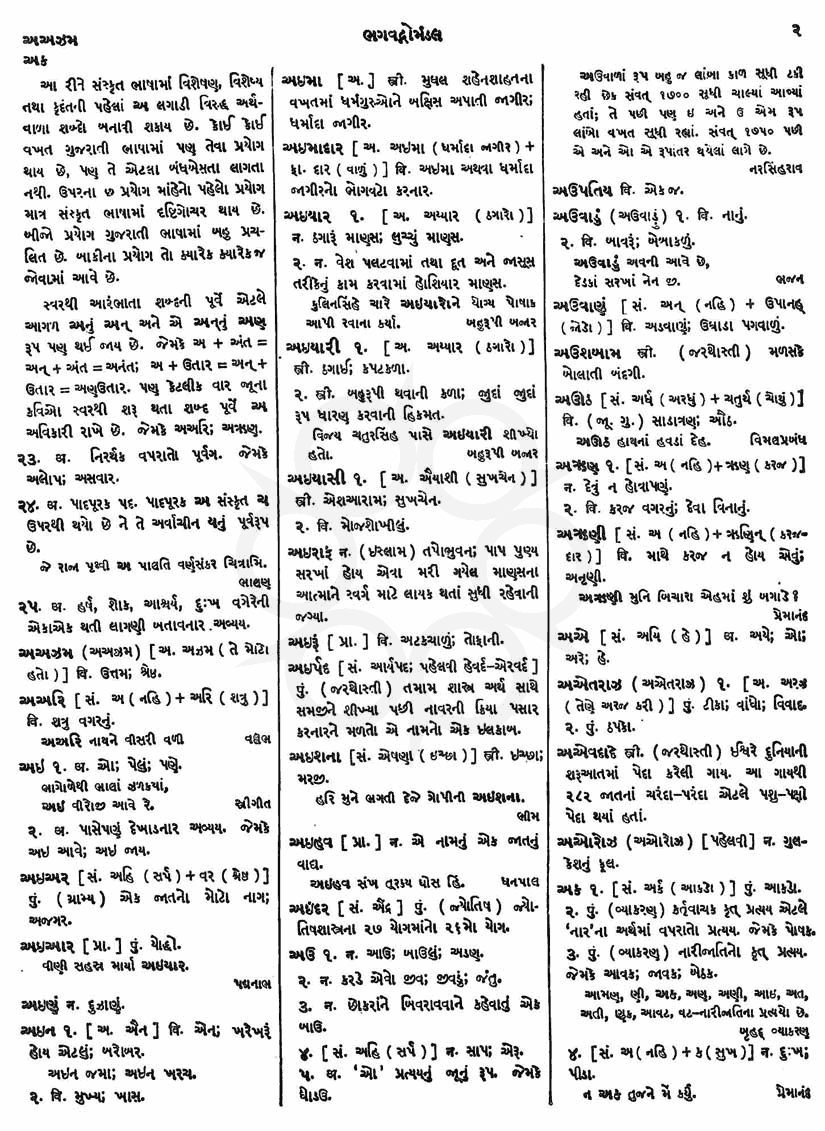 અઅઝમ
અક
ભગવદ્ગોમંડલ
૨
આ રીતે સંસ્કૃત ભાષામાં વિશેષણ, વિશેષ્ય
તથા કૃદંતની પહેલાં અ લગાડી વિરુદ્ધ અર્થ-
વાળા શબ્દો બનાવી શકાય છે. કોઈ કોઈ
વખત ગુજરાતી ભાષામાં પણ તેવા પ્રયોગ
થાય છે, પણ તે એટલા બંધબેસતા લાગતા
નથી. ઉપરના છ પ્રયોગ માંહેનો પહેલો પ્રયોગ
માત્ર સંસ્કૃત ભાષામાં દૃષ્ટિગોચર થાય છે.
બીજો પ્રયોગ ગુજરાતી ભાષામાં બહુ પ્રચ-
લિત છે. બાકીના પ્રયોગ તો ક્યારેક ક્યારેકજ
જોવામાં આવે છે.
સ્વરથી આરંભાતા શબ્દની પૂર્વે એટલે
આગળ અનું અન્ અને એ અનનું અણ
રૂપ પણ થઈ જાય છે. જેમકે અ + અંત =
અન્ + અંત =અનંત; અ + ઉતાર = અન્ +
ઉતાર = અણઉતાર. પણ કેટલીક વાર જૂના
કવિઓ સ્વરથી શરૂ થતા શબ્દ પૂર્વે અ
અવિકારી રાખે છે. જેમકે અઅરિ; અઋણ.
૨૩. અ. નિરર્થક વપરાતો પૂર્વગ. જેમકે
અલોપ; અસવાર.
૨૪. અ. પાદપૂરક પદ. પાદપૂરક અ સંસ્કૃત ચ
ઉપરથી થયો છે ને તે અર્વાચીન યનું પૂર્વરૂપ
છે.
જે રાજા પૃથ્વી અ પાલતિ વર્ણસંકર ચિત્રામિ.
ભાલણ
૨૫. અ. હર્ષ, શોક, આશ્ચર્ય, દુઃખ વગેરેની
એકાએક થતી લાગણી બતાવનાર અવ્યય.
અઅઝમ (અઅઝમ) [ અ. અઝમ ( તે મોટો
હતો ) ] વિ. ઉત્તમ; શ્રેષ્ઠ.
અઅરિ [ સં. અ ( નહિ ) + અરિ ( શત્રુ ) ]
વિ. શત્રુ વગરનું.
અઅરિ નાયને વીસરી વળી વલ્લભ
અઇ ૧. અ. ઓ; પેલું; પણે.
ભાગોળેથી ભાલાં ઝળકયાં,
અઇ વીરોજી આવે રે. સ્ત્રીગીત
૨. અ. પાસેપણું દેખાડનાર અવ્યય. જેમકે
અઇ આવે; અઇ જાય.
અઇઅર [ સં. અહિ ( સર્પ ) + વર ( શ્રેષ્ઠ ) ]
પું. ( ગ્રામ્ય ) એક જાતનો મોટો નાગ;
અજગર.
અઇઆર [ પ્રા. ] પું. યોદ્ધો.
વીણી સહસ્ર માર્યા અઇયાર.
પદ્મનાભ
અઇણું ન. દુઝાણું.
અઇન ૧. [ અ. ઐન ] વિ. એન; ખરેખરૂં
હોય એટલું; બરોબર.
અઇન જમા; અઇન ખરચ.
૨. વિ. મુખ્ય; ખાસ.
અઇમા [ અ. ] સ્ત્રી. મુઘલ શહેનશાહતના
વખતમાં ધર્મગુરુઓને બક્ષિસ અપાતી જાગીર;
ધર્માદા જાગીર.
અઇમાદાર [ અ. અઇમા ( ધર્માદા જાગીર ) +
ફા. દાર ( વાળું ) ] વિ. અઇમા અથવા ધર્માદા
જાગીરનો ભોગવટો કરનાર.
અઇયાર ૧. [ અ. અય્યાર ( ઠગારો ) ]
ન. ઠગારૂં માણસ; લુચ્ચું માણસ.
૨. ન. વેશ પલટવામાં તથા દૂત અને જાસૂસ
તરીકેનું કામ કરવામાં હોશિયાર માણસ.
કુલિનસિંહે ચારે અઇયારોને યોગ્ય પોષાક
આપી રવાના કર્યા. બહુરૂપી બજાર
અઇયારી ૧. [ અ. અય્યાર ( ઠગારો ) ]
સ્ત્રી. ઠગાઈ; કપટકળા.
૨. સ્ત્રી. બહુરૂપી થવાની કળા; જુદાં જુદાં
રૂપ ધારણ કરવાની હિકમત.
વિજય ચતુરસિંહ પાસે અઇયારી શીખ્યો
હતો. બહુરૂપી બજાર
અઇયાસી ૧. [ અ. ઐયાશી ( સુખચેન ) ]
સ્ત્રી. એશઆરામ; સુખચેન.
૨. વિ. મોજશોખીલું.
અઇરાફ ન. ( ઇસ્લામ ) તપોભુવન; પાપ પુણ્ય
સરખાં હોય એવા મરી ગયેલ માણસના
આત્માને સ્વર્ગ માટે લાયક થતાં સુધી રહેવાની
જગ્યા.
અઇરૂં [ પ્રા. ] વિ. અટકચાળું; તોફાની.
અઇર્પદ [ સં. આર્યપદ; પહેલવી હેવર્દ-એરવર્દ ]
પું. ( જરથોસ્તી ) તમામ શાસ્ત્ર અર્થ સાથે
સમજીને શીખ્યા પછી નાવરની ક્રિયા પસાર
કરનારને મળતો એ નામનો એક ઇલકાબ.
અઇશના [ સં. એષણા ( ઇચ્છા ) ] સ્ત્રી. ઇચ્છા;
મરજી.
હરિ મુને ભગતી દેજો ગોપીની અઇશના.
ભીમ
અઇહવ [ પ્રા. ] ન. એ નામનું એક જાતનું
વાદ્ય.
અઇહવ સંખ તૂરકય ઘોસ હિં. ધનપાલ
અઇંદર [ સં. ઐંદ્ર ] પું. ( જ્યોતિષ ) જ્યો-
તિષશાસ્ત્રના ૨૭ યોગમાંનો ૨૬મો યોગ.
અઉ ૧. ન. આઉ; બાઉલું; અડણ.
૨. ન. કરડે એવો જીવ; જીવડું; જંતુ.
૩. ન. છોકરાંને બિવરાવવાને કહેવાતું એક
બાઉ.
૪. [ સં. અહિ ( સર્પ ) ] ન. સાપ; એરૂ.
૫. અ. 'ઓ' પ્રત્યયનું જૂનું રૂપ. જેમકે
ઘોડઉ.
અઉવાળાં રૂપ બહુ જ લાંબા કાળ સુધી ટકી
રહી છેક સંવત્ ૧૭૦૦ સુધી ચાલ્યાં આવ્યાં
હતાં; તે પછી પણ ઇ અને ઉ એમ રૂપ
લાંબો વખત સુધી રહ્યાં. સંવત્ ૧૭૫૦ પછી
એ અને ઓ એ રૂપાંતર થયેલાં લાગે છે.
નરસિંહરાવ
અઉપતિય વિ. એકજ.
અઉવાડું (અઉવાડું) ૧. વિ. નાનું.
૨. વિ. બાવરૂં; બેબાકળું.
અઉવાડું અવની આવે છે,
દેડકાં સરખાં નેન જી. ભજન
અઉવાણું [ સં. અન્ ( નહિ ) + ઉપાનહ્
( જોડો ) ] વિ. અડવાણું; ઉઘાડા પગવાળું.
અઉશબામ સ્ત્રી. ( જરથોસ્તી ) મળસકે
બોલાતી બંદગી.
અઊઠ [ સં. અર્ધ ( અરધું ) + ચતુર્થ ( ચોથું ) ]
વિ. ( જૂ. ગુ. ) સાડાત્રણ; ઔઠ.
અઊઠ હાથનાં હવડાં દેહ. વિમલપ્રબંધ
અઋણ ૧. [ સં. અ ( નહિ ) + ઋણ ( કરજ ) ]
ન. દેવું ન હોવાપણું.
૨. વિ. કરજ વગરનું; દેવા વિનાનું.
અઋણી [ સં. અ ( નહિ ) + ઋણિન્ ( કરજ-
દાર ) ] વિ. માથે કરજ ન હોય એવું;
અનૃણી.
અઋણી મુનિ બિચારા એહમાં શું બગાડે ?
પ્રેમાનંદ
અએ [ સં. અયિ ( હે ) ] અ. અયે; ઓ;
અરે; હે.
અએતરાઝ ( અએતરાઝ ) ૧. [ અ. અરઝ
( તેણે અરજ કરી ) ] પું. ટીકા; વાંધો; વિવાદ.
૨. પું. ઠપકો.
અએવદાદે સ્ત્રી. ( જરથોસ્તી ) ઇશ્વરે દુનિયાની
શરૂઆતમાં પેદા કરેલી ગાય. આ ગાયથી
૨૮૨ જાતનાં ચરંદા-પરંદા એટલે પશુ-પક્ષી
પેદા થયાં હતાં.
અઓરોઝ (અઓરોઝ) [પહેલવી] ન. ગુલ-
કેશનું ફૂલ.
અક ૧. [ સં. અર્ક ( આકડો ) ] પું. આકડો.
૨. પું. (વ્યાકરણ) કર્તૃવાચક કૃત્ પ્રત્યય એટલે
'નાર'ના અર્થમાં વપરાતો પ્રત્યય. જેમકે પોષક.
૩. પું. (વ્યાકરણ) નારીજાતિનો કૃત્ પ્રત્યય.
જેમકે આવક; જાવક; બેઠક.
આમણ, ણી, અક, અણ, અણી, આઇ, અત,
અતી, ણૂક, આવટ, વટ-નારીજાતિના પ્રત્યયો છે.
બૃહદ્ વ્યાકરણ
૪. [સં. અ (નહિ) + ક (સુખ) ] ન. દુઃખ;
પીડા.
ન અક તુજને મેં કર્યું. પ્રેમાનંદ